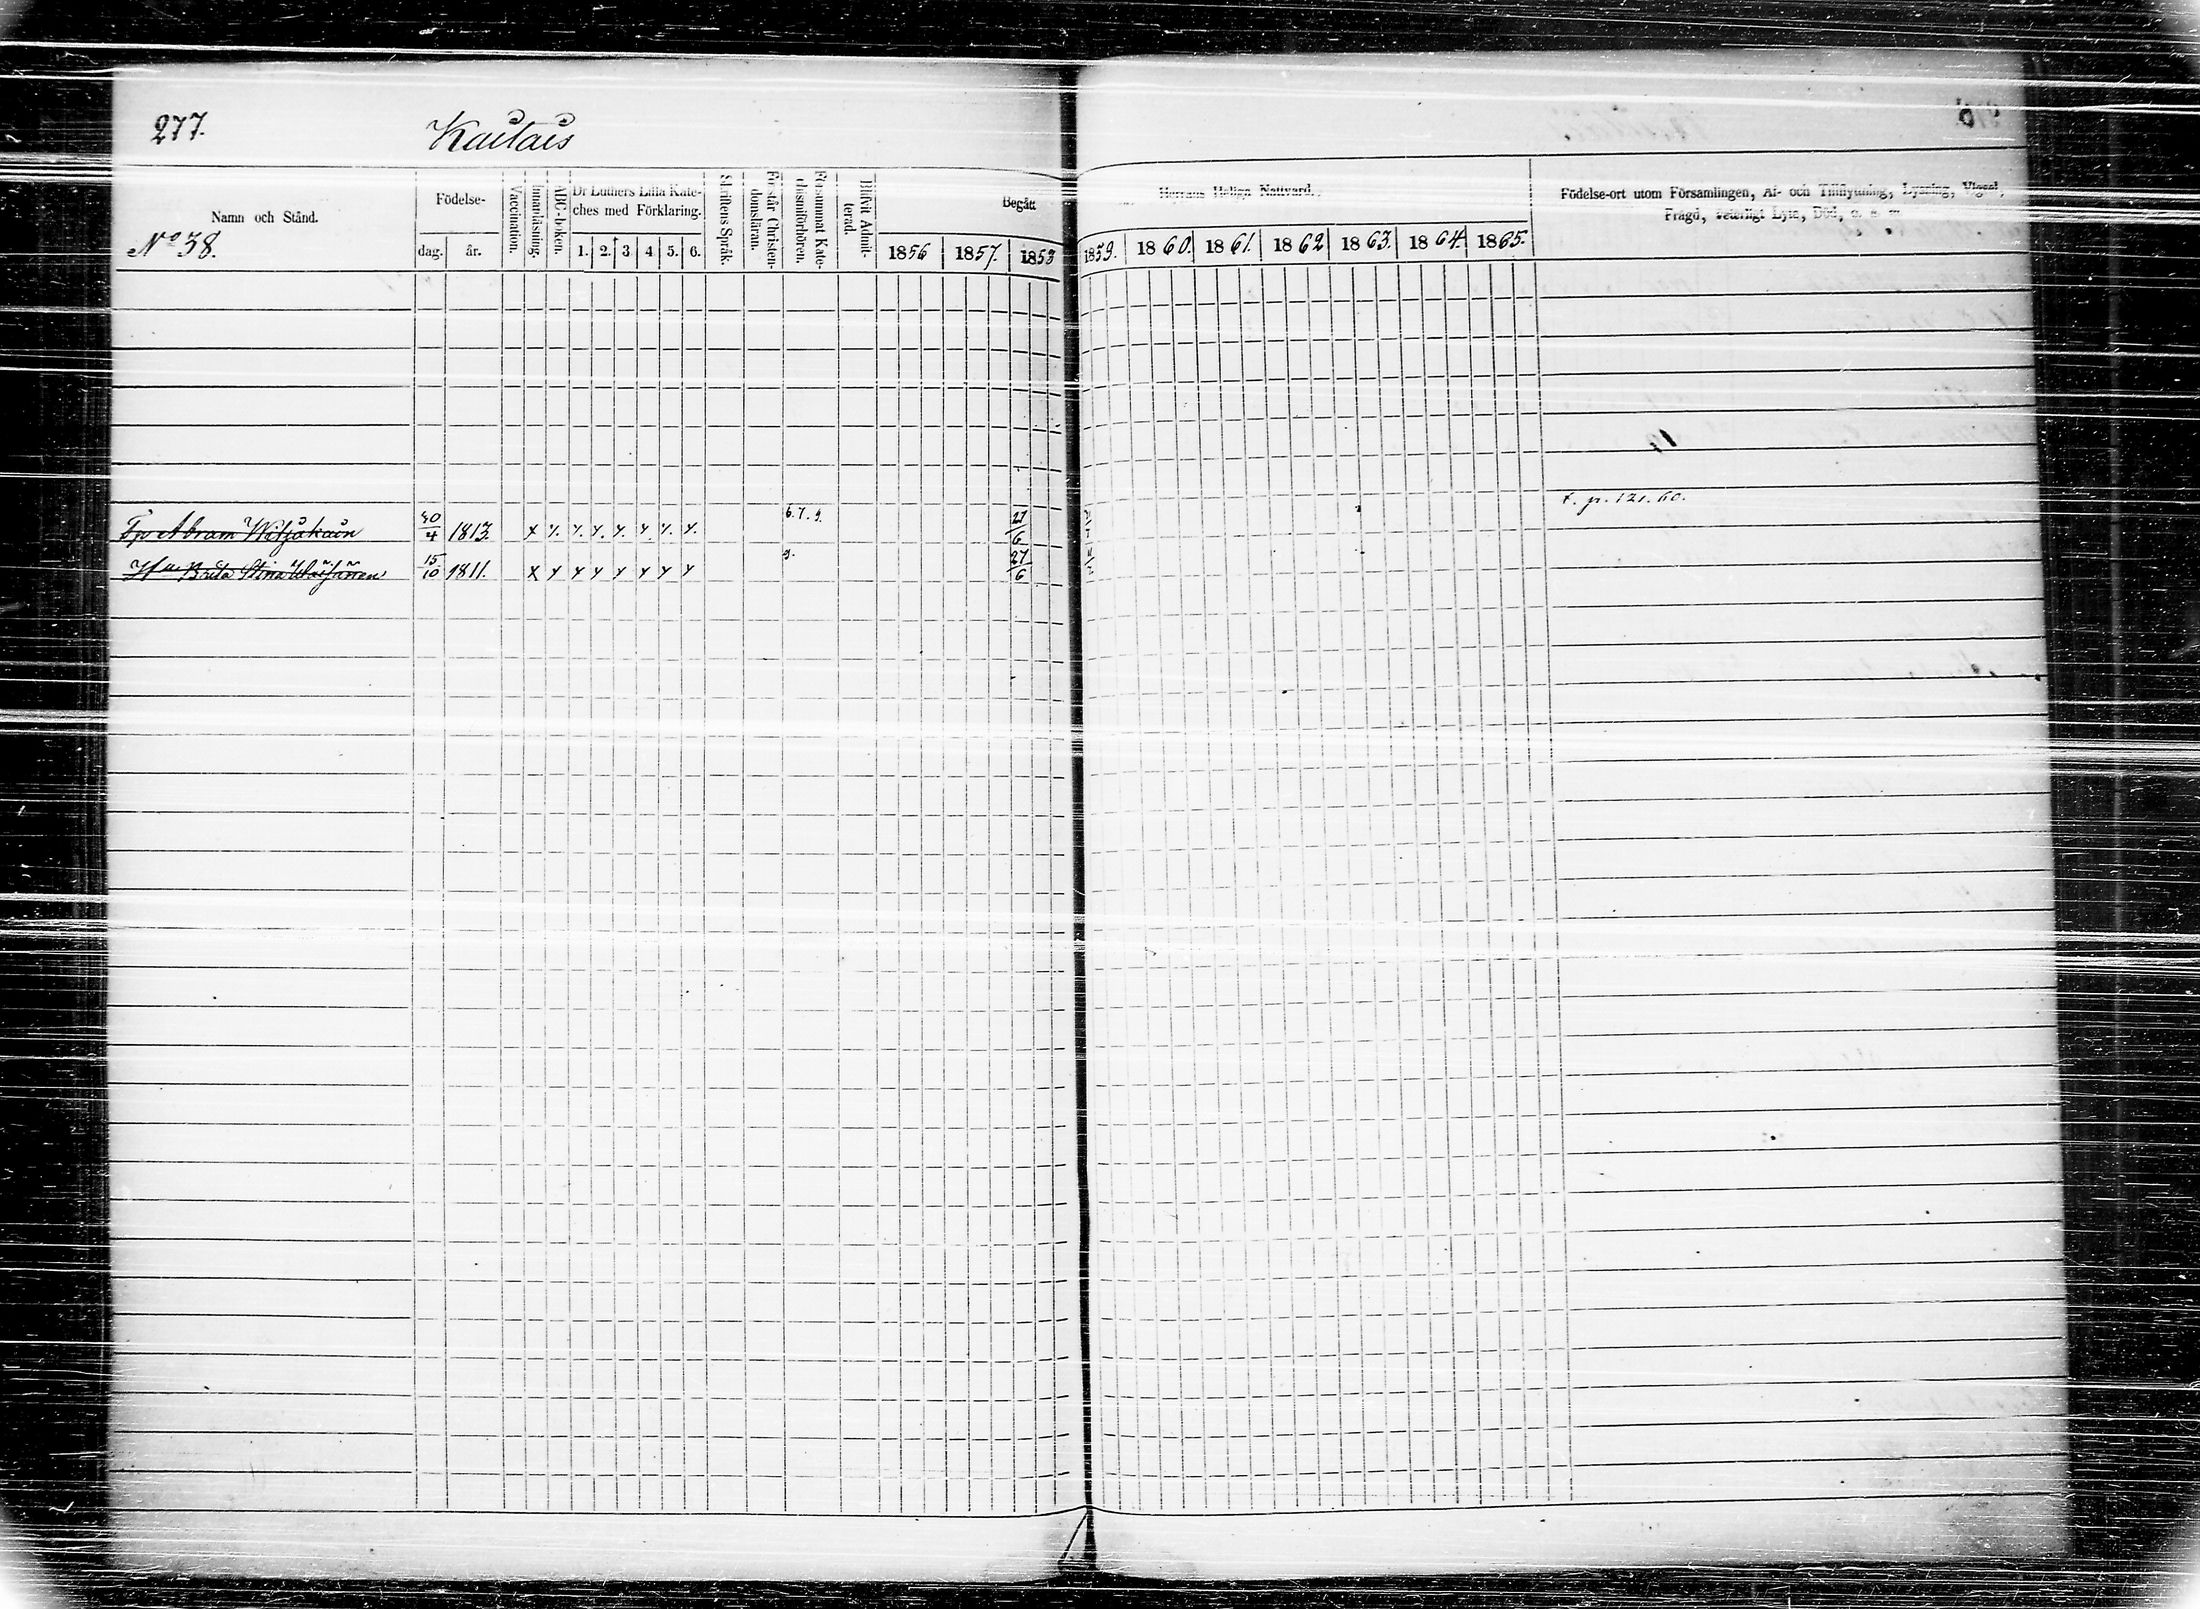 277.
Kaitais
Namn och Stånd.
No 38.
Födelse-
dag. år.
Vaccination.
Innanläsning.
ABC-boken.
Dr Luthers Lilla Kate-
ches med Förklaring.
1. 2. 3 4 5. 6.
Skriftens Språk.
Förstår Christen-
domsläran.
Försummat Kate-
chismiförhören.
Blifvit Admit-
terad.
Begått
1856 1857. 1858
Herrans Heliga Nattvard.
1859. 1860. 1861. 1862 1863. 1864. 1865.
Födelse-ort utom Församlingen, Af- och Tillflyttning, Lysning, Vigsel,
Frägd, veterligt Lyte, Död, m. m.
t. p. 121. 60.
Tp Abram Wiljakain 30/4 1813. x y. y. y. y. y. y. y. 6. 7. 9. 27/6
Hu Brita Stina 15/10 1811. x y y y y y y y 9. 27/6